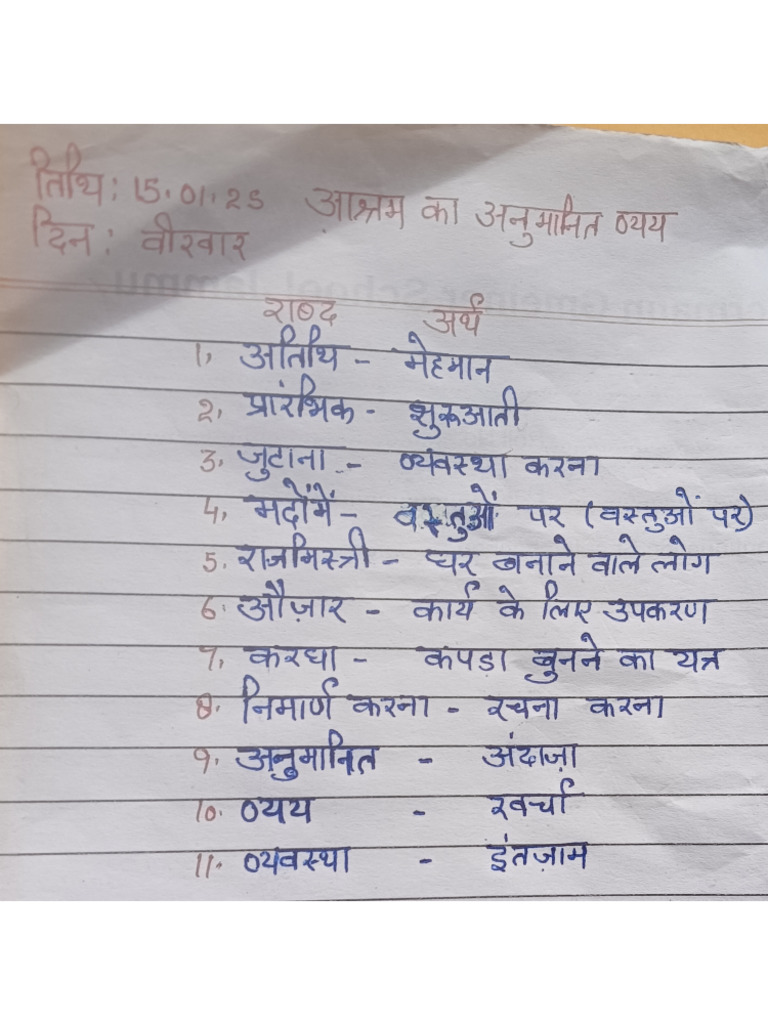 तिथि: 15.01.25 आश्रम का अनुमानित व्यय
दिन: वीरवार
शब्द अर्थ
1. अतिथि - मेहमान
2. प्रारंभिक - शुरूआती
3. जुटाना - व्यवस्था करना
4. मदोंमें - वस्तुओं पर (वस्तुओं पर)
5. राजमिस्त्री - घर बनाने वाले लोग
6. औज़ार - कार्य के लिए उपकरण
7. करघा - कपड़ा बुनने का यत्र
8. निमार्ण करना - रचना करना
9. अनुमानित - अंदाज़ा
10. व्यय - खर्चा
11. व्यवस्था - इंतज़ाम